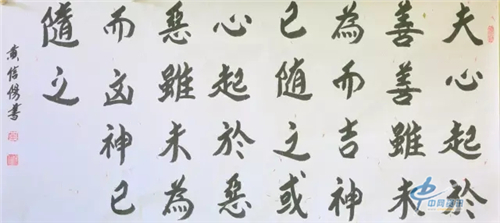 夫心起於
善善雖未
為而吉神
已随之或
心起於惡
惡雖未為
而凶神已
隨之